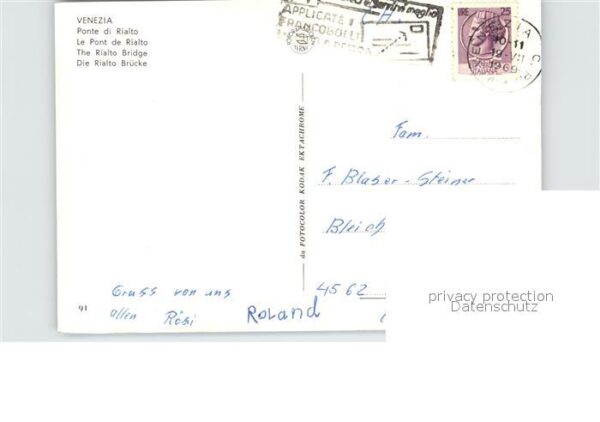 VENEZIA
Ponte di Rialto
Le Pont de Rialto
The Rialto Bridge
Die Rialto Brücke
APPLICATE I
FRANCOBOLLI
LIRE 25
VENEZIA
10-11
19-VII
1969
da FOTOCOLOR KODAK EKTACHROME
Fam.
F. Blaser-Steiner
Bleich
4562
Gruss von uns
allen Rösi Roland
91
privacy protection
Datenschutz